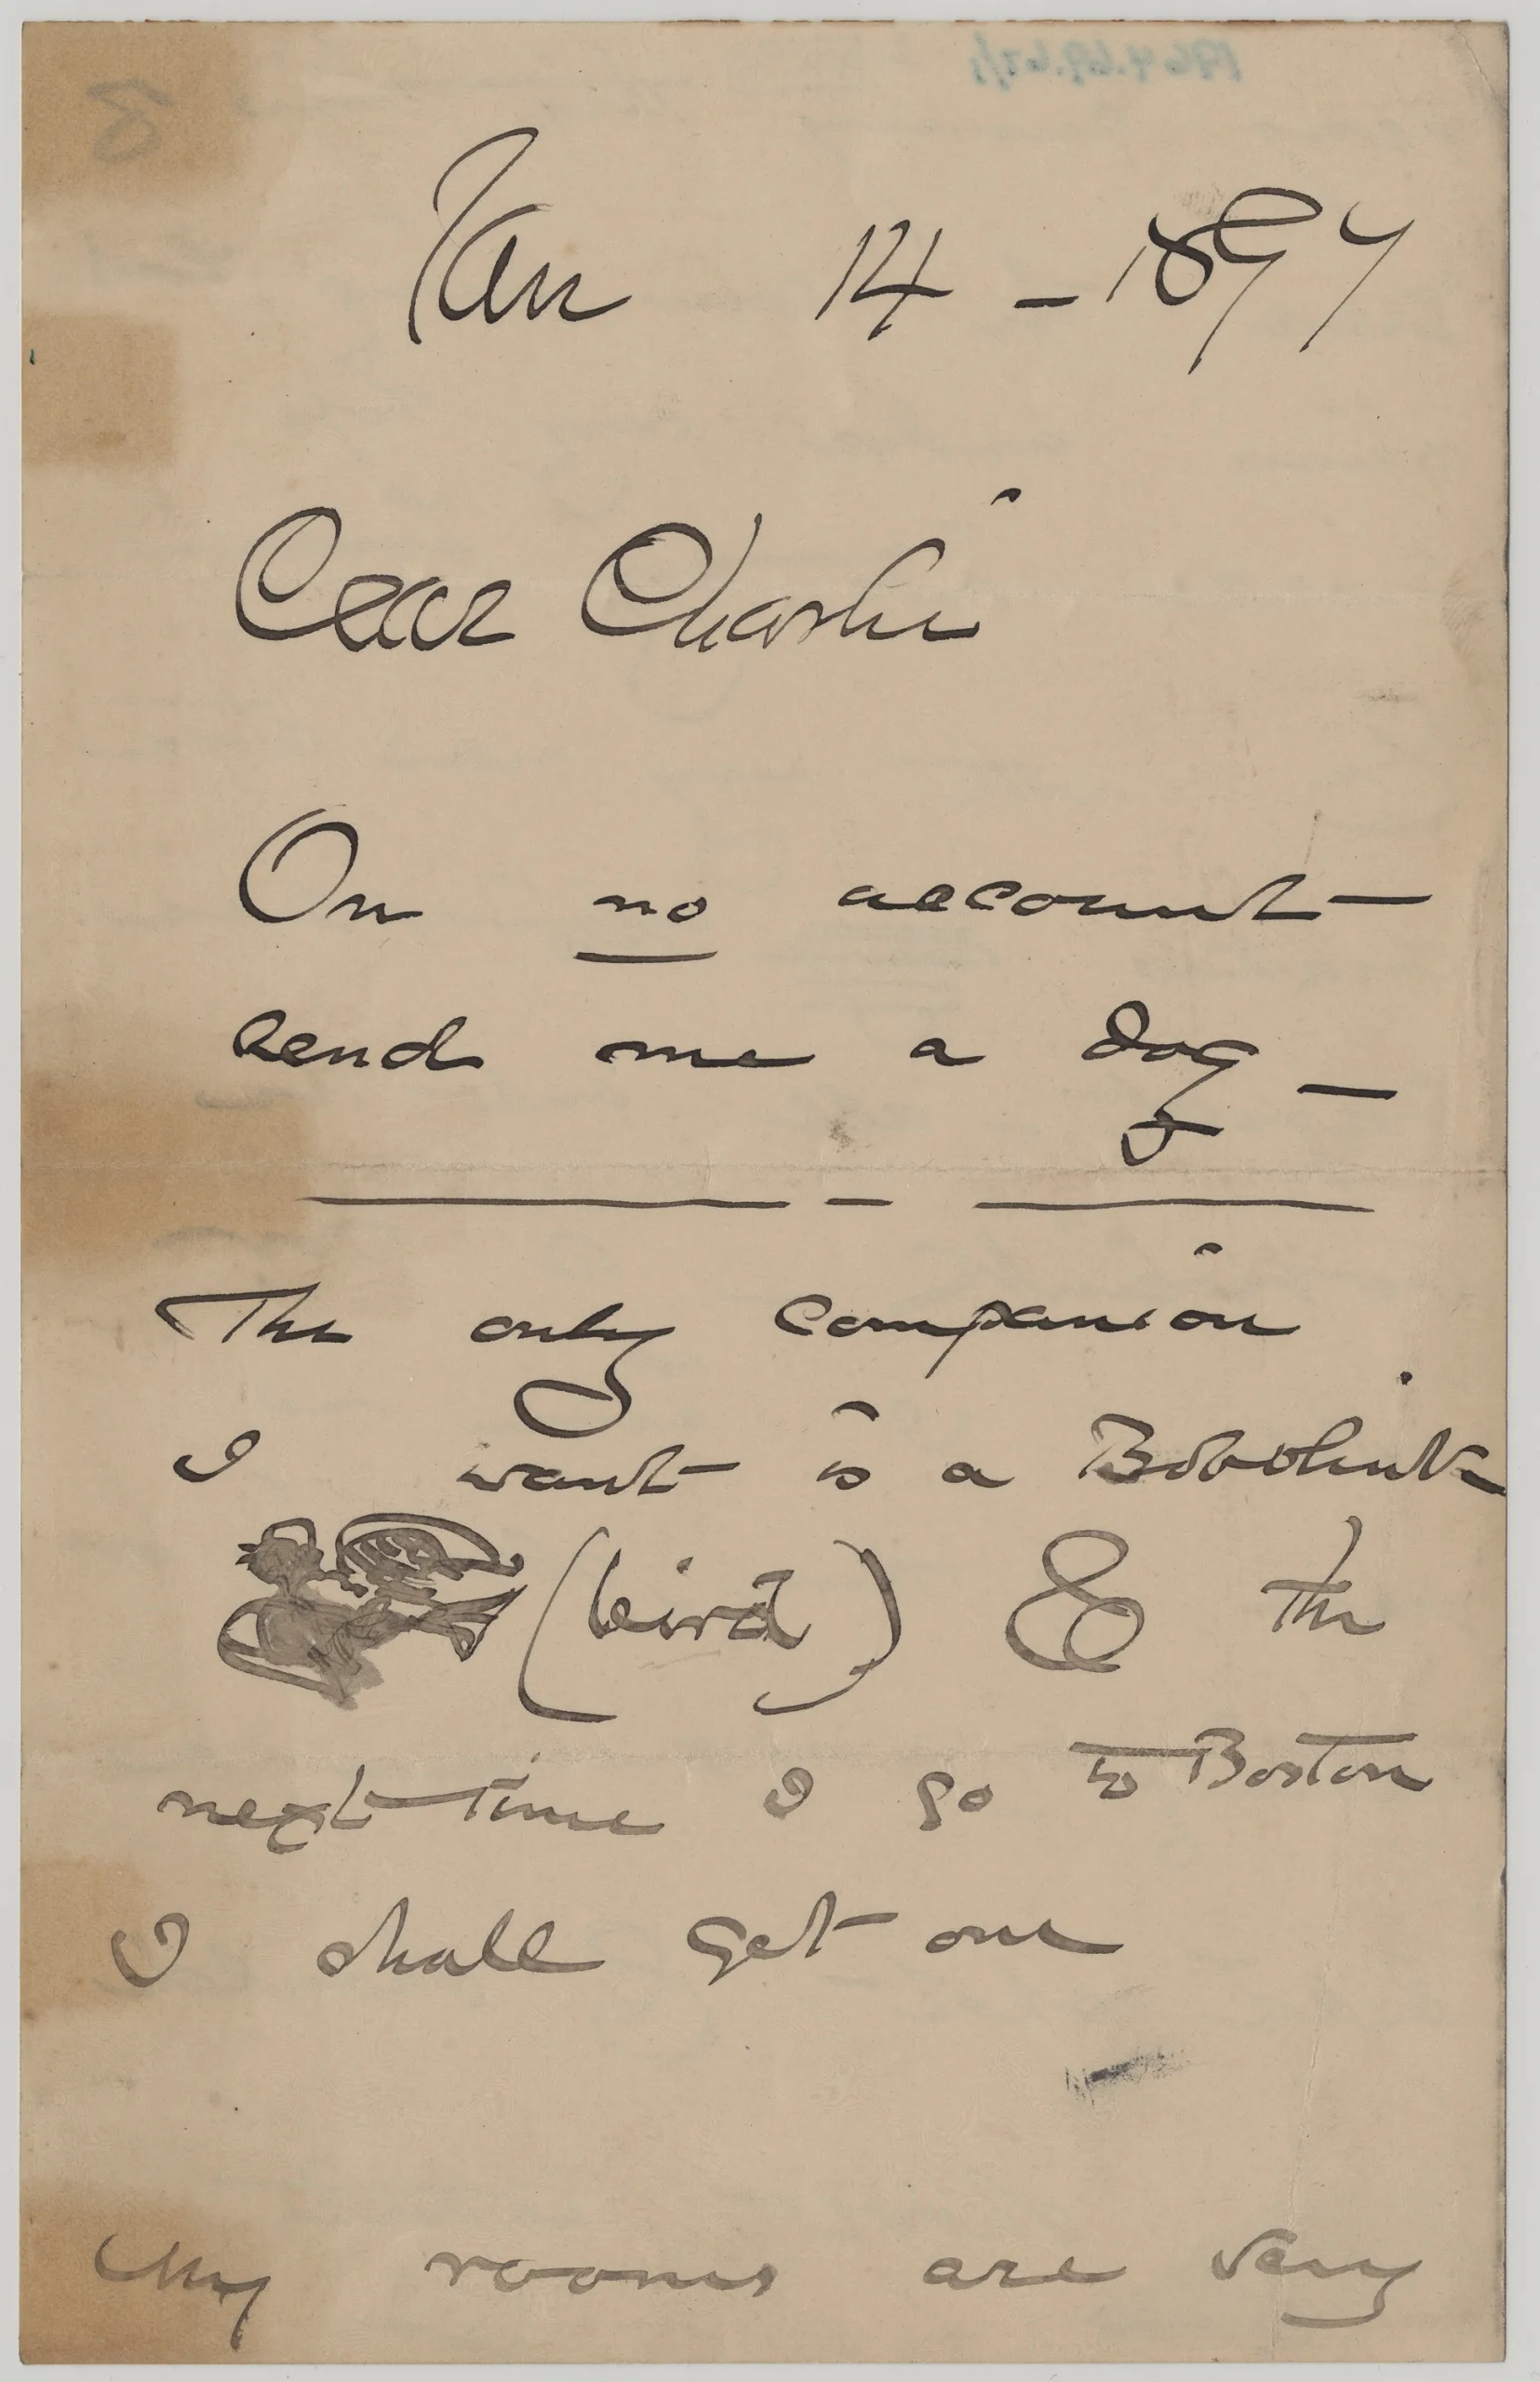 Jan 14 - 1897
Dear Charlie
On no account
send me a dog —
The only companion
I want is a Bobolink
(bird) & the
next time I go to Boston
I shall get one
My rooms are very